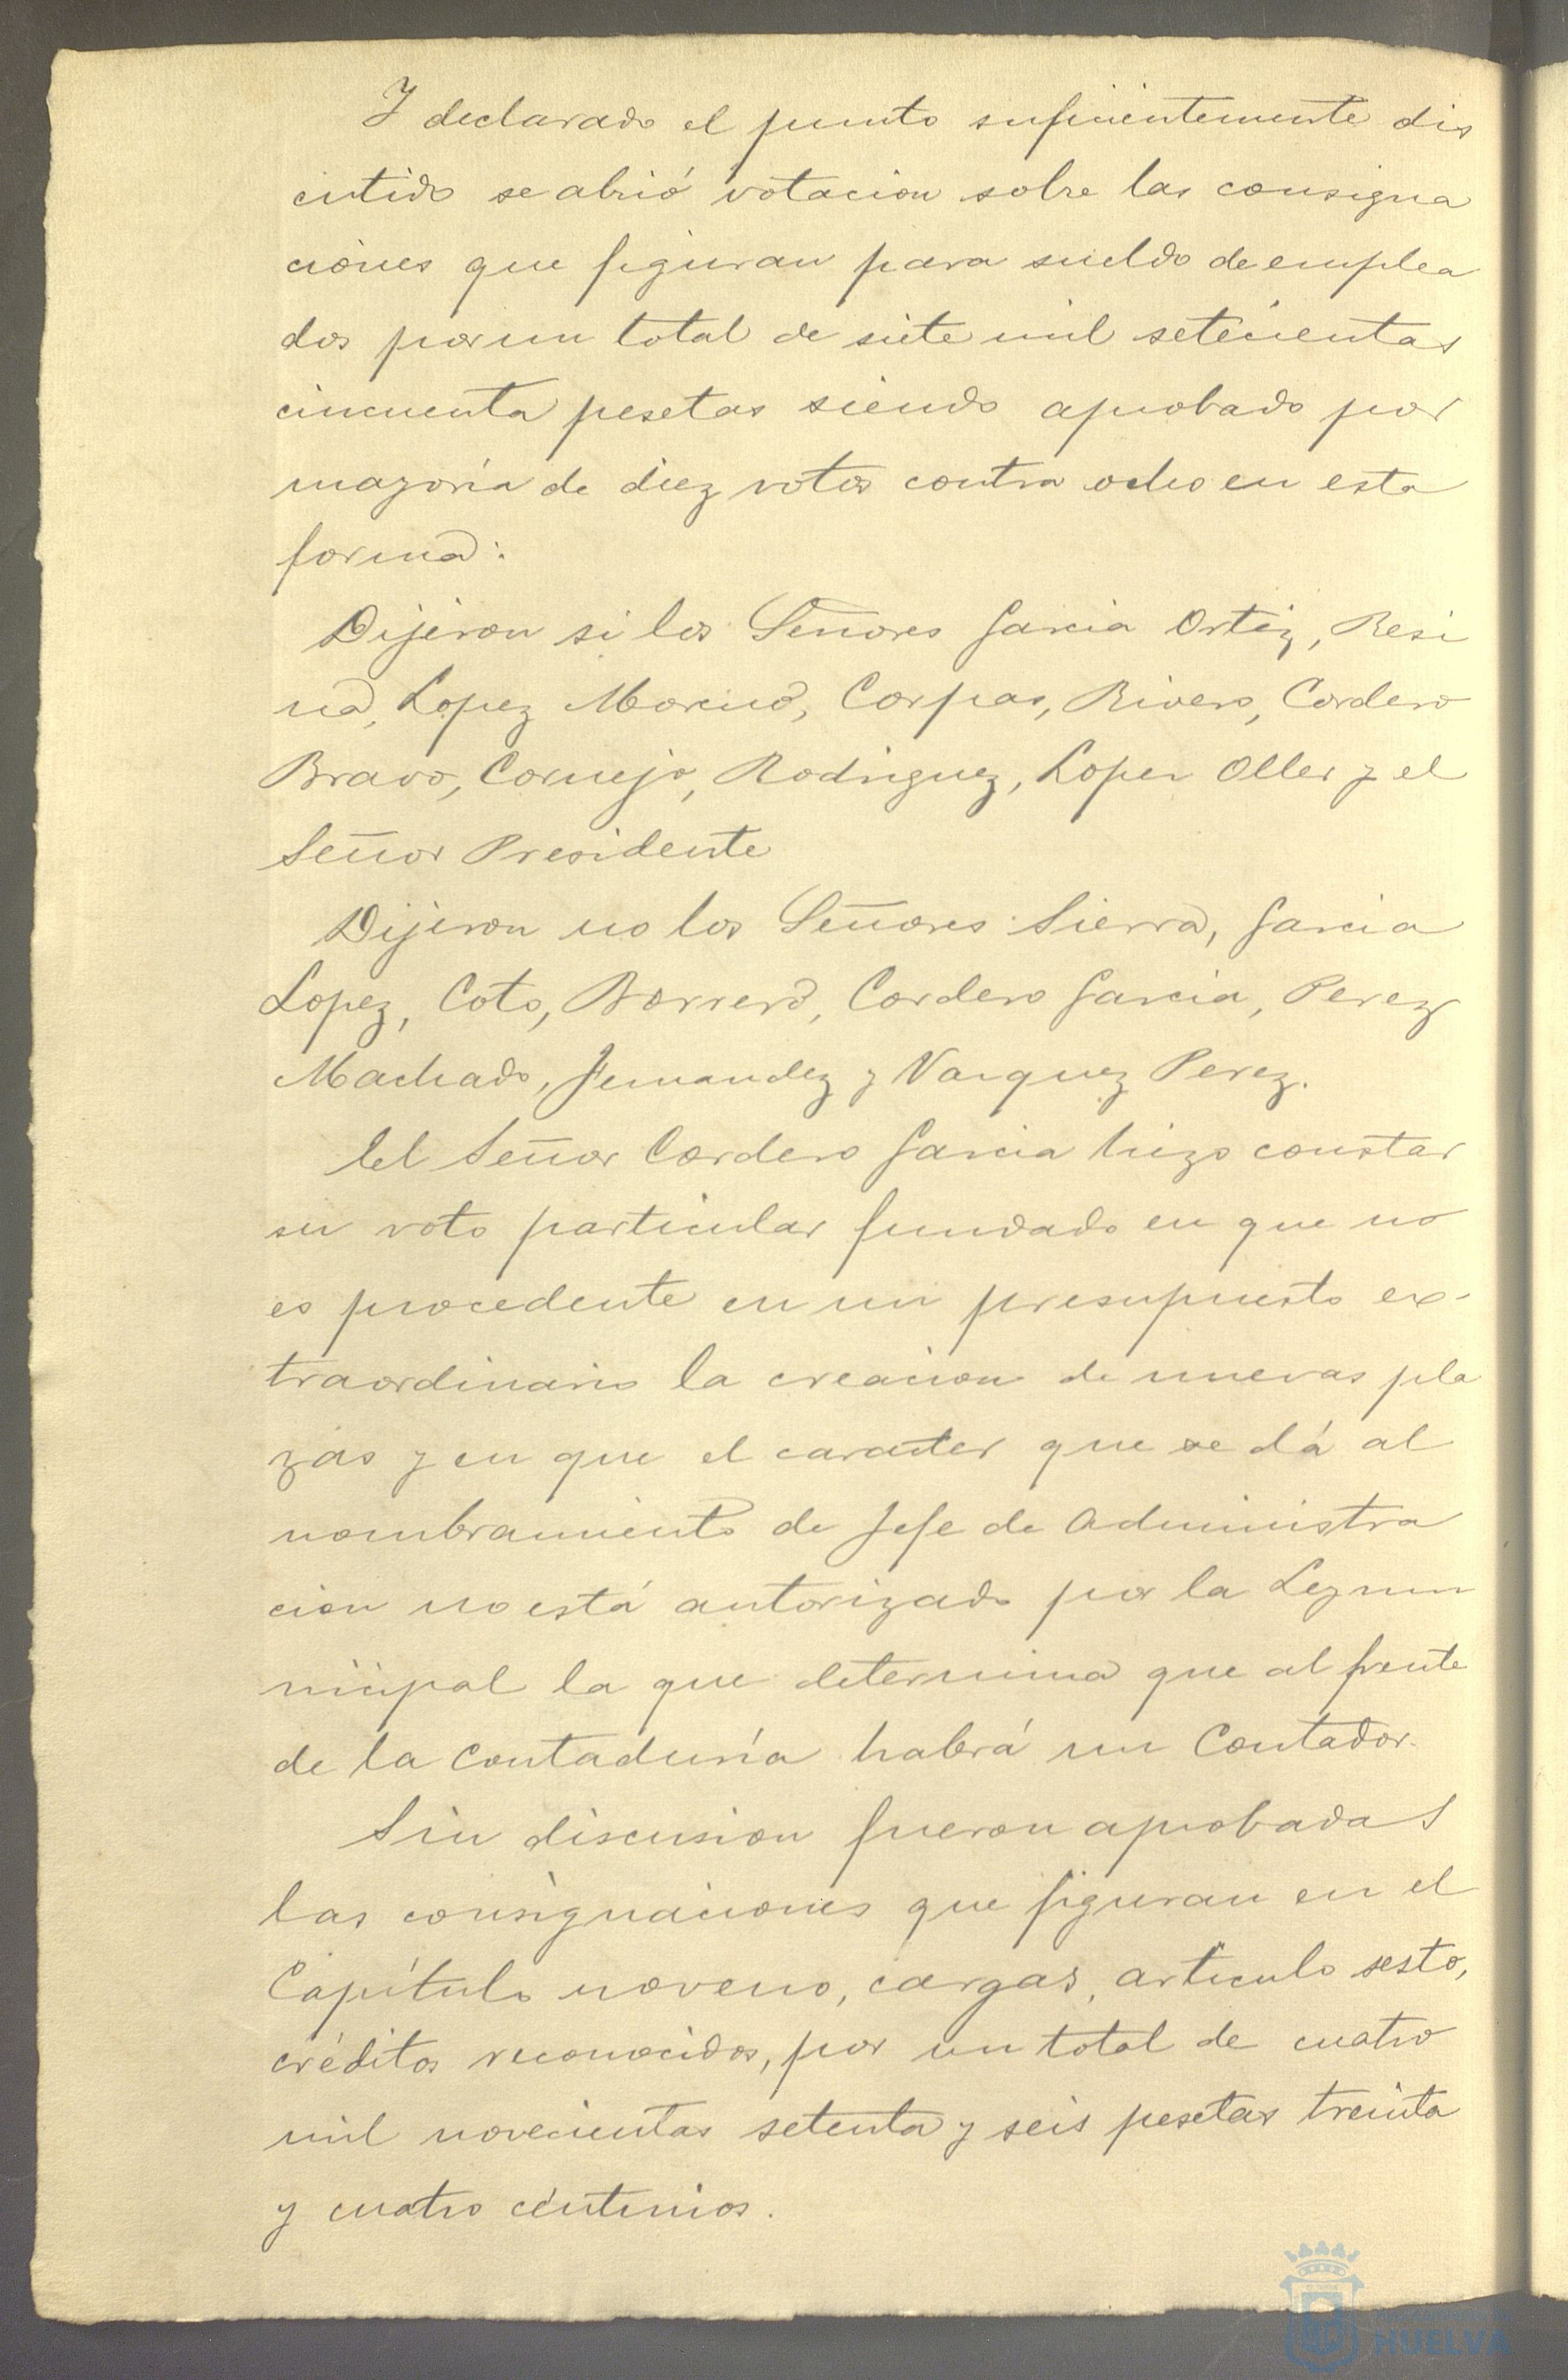 Y declarado el punto suficientemente dis
cutido se abrió votacion sobre las consigna
ciones que figuran para sueldo de emplea
dos por un total de siete mil setecientas
cincuenta pesetas siendo aprobado por
mayoria de diez votos contra ocho en esta
forma:
Dijeron si los Señores Garcia Ortiz, Resi
na, Lopez Moreno, Corpas, Rivero, Cordero
Bravo, Cornejo, Rodriguez, Lopez Oller y el
Señor Presidente
Dijeron no los Señores Sierra, Garcia
Lopez, Coto, Borrero, Cordero Garcia, Perez
Machado, Fernandez y Vazquez Perez.
El Señor Cordero Garcia hizo constar
su voto particular fundado en que no
es procedente en un presupuesto ex-
traordinario la creacion de nuevas pla
zas y en que el caracter que se dá al
nombramiento de Jefe de Administra
cion no está autorizado por la Ley mu
nicipal la que determina que al frente
de la Contaduría habrá un Contador.
Sin discusion fueron aprobadas
las consignaciones que figuran en el
Capítulo noveno, cargas, articulo sesto,
créditos reconocidos, por un total de cuatro
mil novecientas setenta y seis pesetas treinta
y cuatro céntimos.
HUELVA